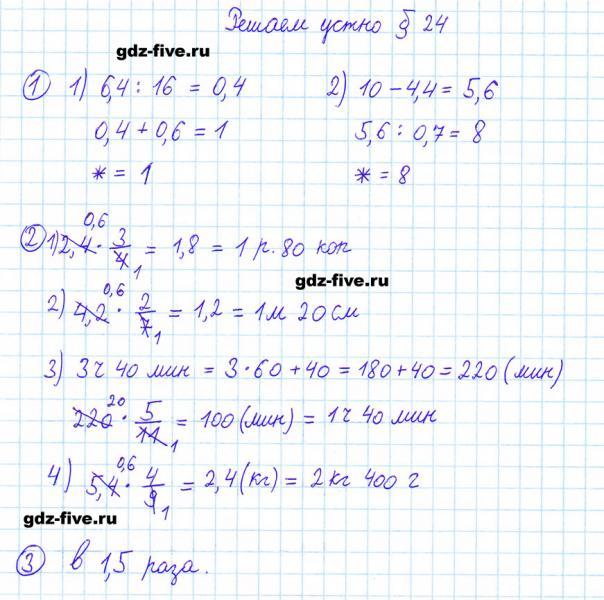 Решаем устно § 24
gdz-five.ru
① 1) 6,4 : 16 = 0,4 2) 10 − 4,4 = 5,6
0,4 + 0,6 = 1 5,6 : 0,7 = 8
* = 1 * = 8
0,6
② 1) 2,4 · 3/4 1 = 1,8 = 1 р. 80 коп
gdz-five.ru
0,6
2) 4,2 · 2/7 1 = 1,2 = 1м 20 см
3) 3 ч 40 мин = 3 · 60 + 40 = 180 + 40 = 220 (мин)
20
220 · 5/11 1 = 100 (мин) = 1 ч 40 мин
0,6
4) 5,4 · 4/9 1 = 2,4 (кг) = 2 кг 400 г
gdz-five.ru
③ в 1,5 раза.